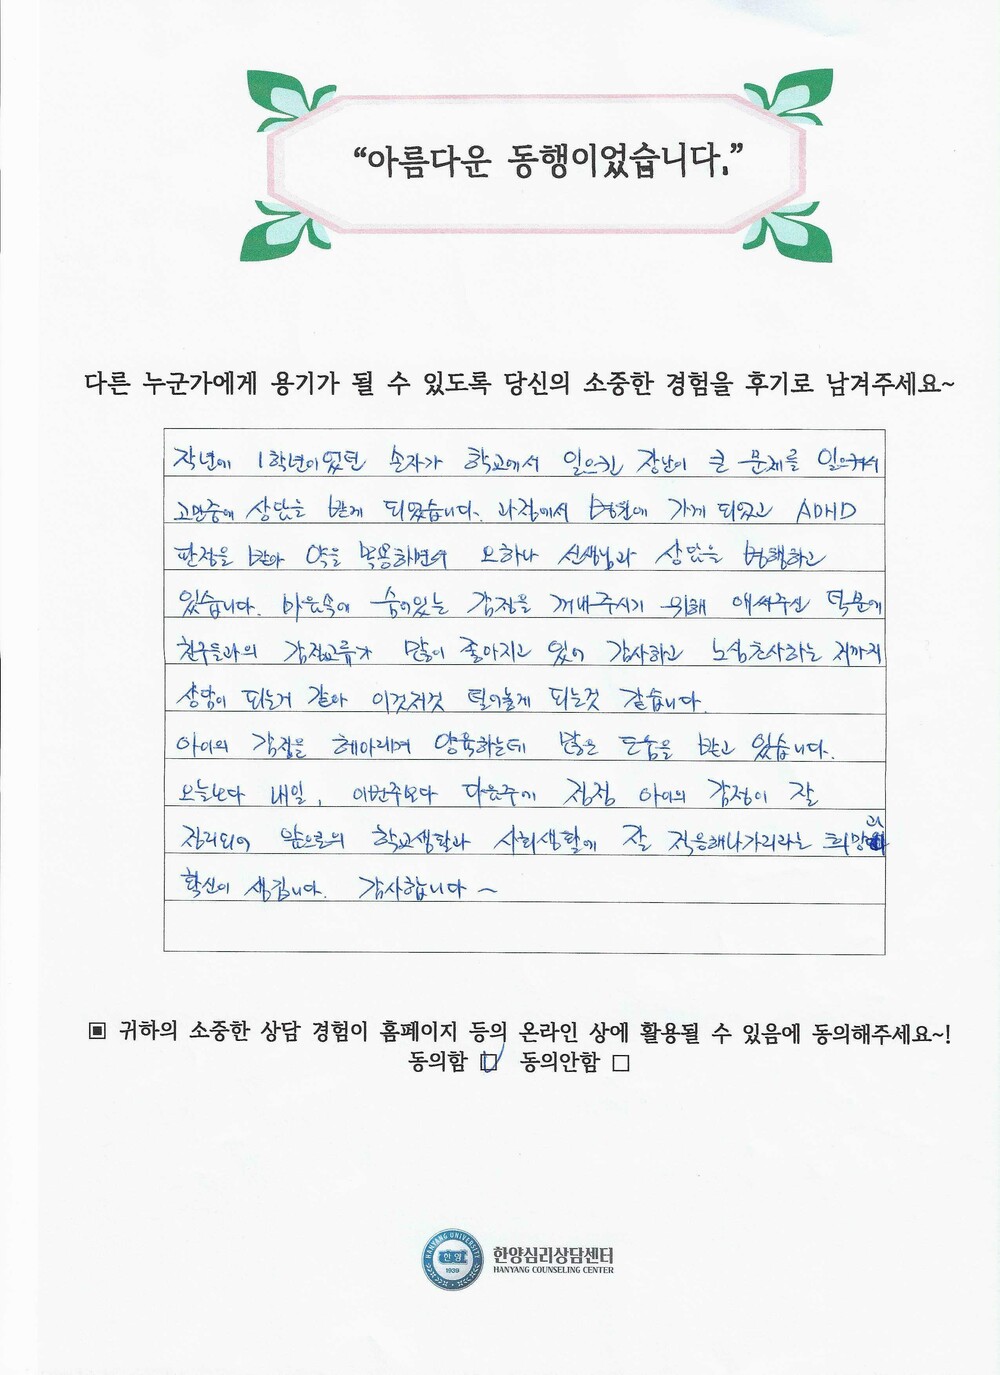 “아름다운 동행이었습니다.”
다른 누군가에게 용기가 될 수 있도록 당신의 소중한 경험을 후기로 남겨주세요~
작년에 1학년이었던 손자가 학교에서 일으킨 장난이 큰 문제를 일으켜서
고민중에 상담을 받게 되었습니다. 과정에서 병원에 가게 되었고 ADHD
판정을 받아 약을 복용하면서 오하나 선생님과 상담을 병행하고
있습니다. 마음속에 숨어있는 감정을 꺼내주시기 위해 애써주신 덕분에
친구들과의 감정교류가 많이 좋아지고 있어 감사하고 노심초사하는 저까지
상담이 되는거 같아 이것저것 털어놓게 되는것 같습니다.
아이의 감정을 헤아리며 양육하는데 많은 도움을 받고 있습니다.
오늘보다 내일, 이번주보다 다음주에 점점 아이의 감정이 잘
정리되어 앞으로의 학교생활과 사회생활에 잘 적응해나가리라는 희망과
확신이 생깁니다. 감사합니다 ~
▣ 귀하의 소중한 상담 경험이 홈페이지 등의 온라인 상에 활용될 수 있음에 동의해주세요~!
동의함 ☑ 동의안함 □
HANYANG UNIVERSITY
한양
1939
한양심리상담센터
HANYANG COUNSELING CENTER